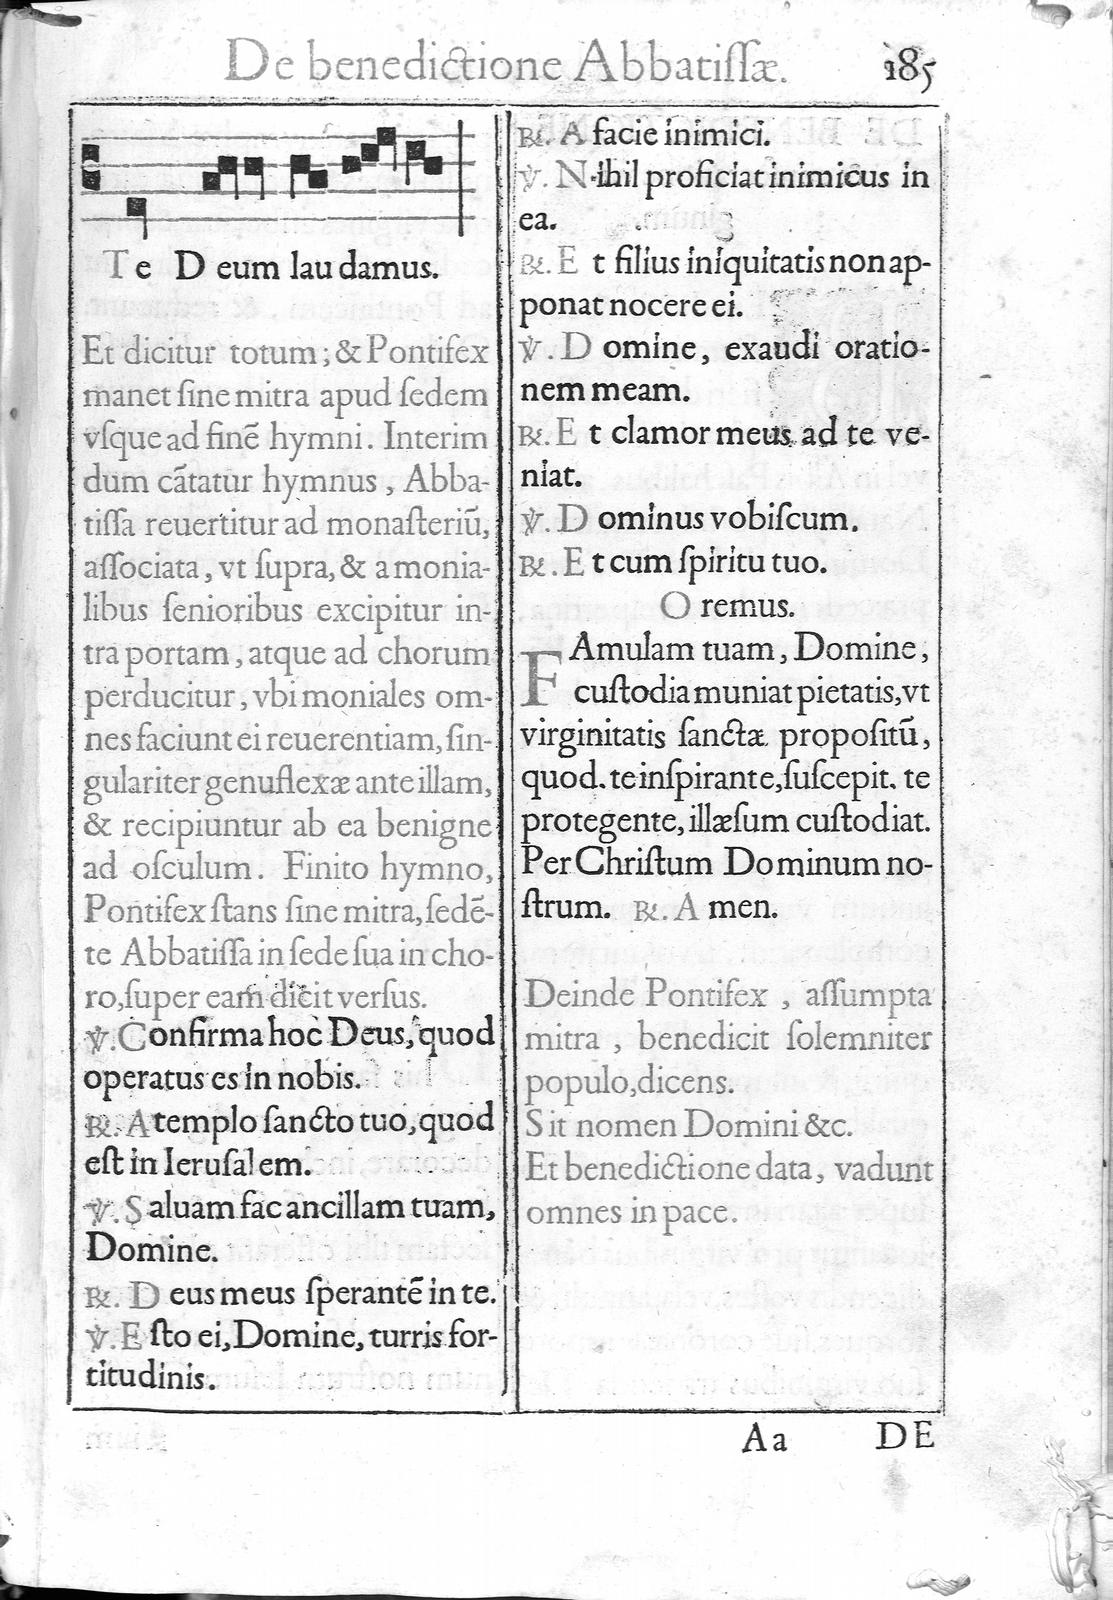 De benedictione Abbatiſſæ.
185
Te Deum laudamus.
Et dicitur totum; & Pontifex
manet ſine mitra apud ſedem
vſque ad finẽ hymni. Interim
dum cãtatur hymnus, Abba-
tiſſa reuertitur ad monaſteriũ,
aſſociata, vt ſupra, & a monia-
libus ſenioribus excipitur in-
tra portam, atque ad chorum
perducitur, vbi moniales om-
nes faciunt ei reuerentiam, ſin-
gulariter genuflexæ ante illam,
& recipiuntur ab ea benigne
ad oſculum. Finito hymno,
Pontifex ſtans ſine mitra, ſedẽ-
te Abbatiſſa in ſede ſua in cho-
ro, ſuper eam dicit verſus.
℣. Confirma hoc Deus, quod
operatus es in nobis.
℟. A templo ſancto tuo, quod
eſt in Ieruſalem.
℣. Saluam fac ancillam tuam,
Domine.
℟. Deus meus ſperantẽ in te.
℣. Eſto ei, Domine, turris for-
titudinis.
℟. A facie inimici.
℣. Nihil proficiat inimicus in
ea.
℟. Et filius iniquitatis non ap-
ponat nocere ei.
℣. Domine, exaudi oratio-
nem meam.
℟. Et clamor meus ad te ve-
niat.
℣. Dominus vobiſcum.
℟. Et cum ſpiritu tuo.
Oremus.
FAmulam tuam, Domine,
cuſtodia muniat pietatis, vt
virginitatis ſanctæ propoſitũ,
quod. te inſpirante, ſuſcepit. te
protegente, illæſum cuſtodiat.
Per Chriſtum Dominum no-
ſtrum. ℟. Amen.
Deinde Pontifex, aſſumpta
mitra, benedicit ſolemniter
populo, dicens.
Sit nomen Domini &c.
Et benedictione data, vadunt
omnes in pace.
Aa
DE